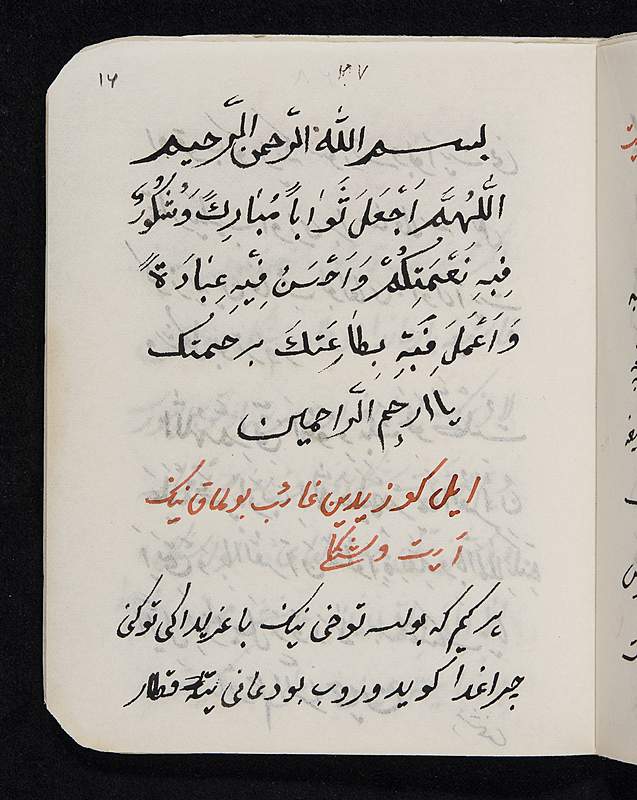 ١٤
بسم الله الرّحمن الرّحيم
اللّٰهُمَّ اَجْعَلَ ثَّوٰاباً مُبٰارِكً وَشُكُورً
فِيَهِ نَعْمَتِكُمْ وَاَحْسَنُ فِيْهِ عِبٰادَةً
وَاَعْمَلَ فِيَهِ بِطٰاعَتِكَ برحمتك
ياارحم الرّاحمين
ايل كوزيدين غائب بولماق نيك
آيت وشكلى
هر كيم كه بولسه توخى نيك باغريداكى توكنى
چراغدا كويدوروب بو دعانى يته قطار